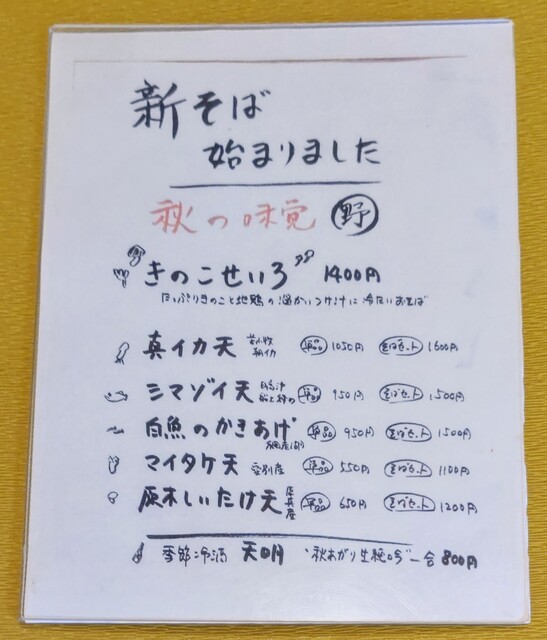 新そば
始まりました
秋の味覚 野
きのこせいろ 1400円
たっぷりきのこと地鶏の温かいつけ汁に冷たいおそば
真イカ天 苫小牧 朝イカ 単品 1050円 そばセット 1600円
シマゾイ天 単品 950円 そばセット 1500円
白魚のかきあげ 単品 950円 そばセット 1500円
マイタケ天 愛別産 単品 550円 そばセット 1100円
原木しいたけ天 単品 650円 そばセット 1200円
季節冷酒 天明 秋あがり生詰 一合 800円